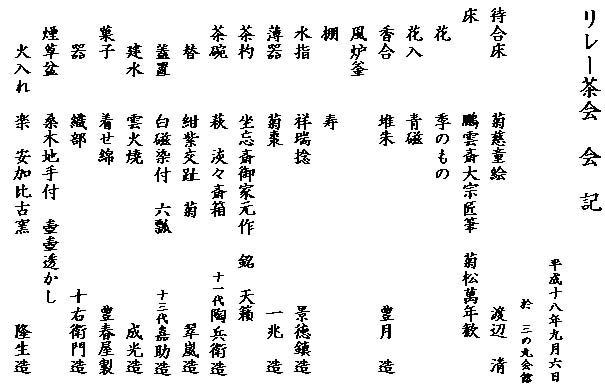 リレー茶会 会記
平成十八年九月六日
於 三の丸会館
待合床 菊慈童絵 渡辺 清
床 鵬雲斎大宗匠筆 菊松萬年歓
花 季のもの
花入 青磁
香合 堆朱 豊月 造
風炉釜
棚 寿
水指 祥瑞捻 景徳鎮造
薄器 菊棗 一兆 造
茶杓 坐忘斎御家元作 銘 天籟
茶碗 萩 淡々斎箱 十一代陶兵衛造
替 紺紫交趾 菊 翠嵐造
蓋置 白磁染付 六瓢 十三代嘉助造
建水 雲火焼 成光造
菓子 着せ綿 豊春屋製
器 織部 十右衛門造
煙草盆 桑木地手付 壷壷透かし
火入れ 楽 安加比古窯 隆生造